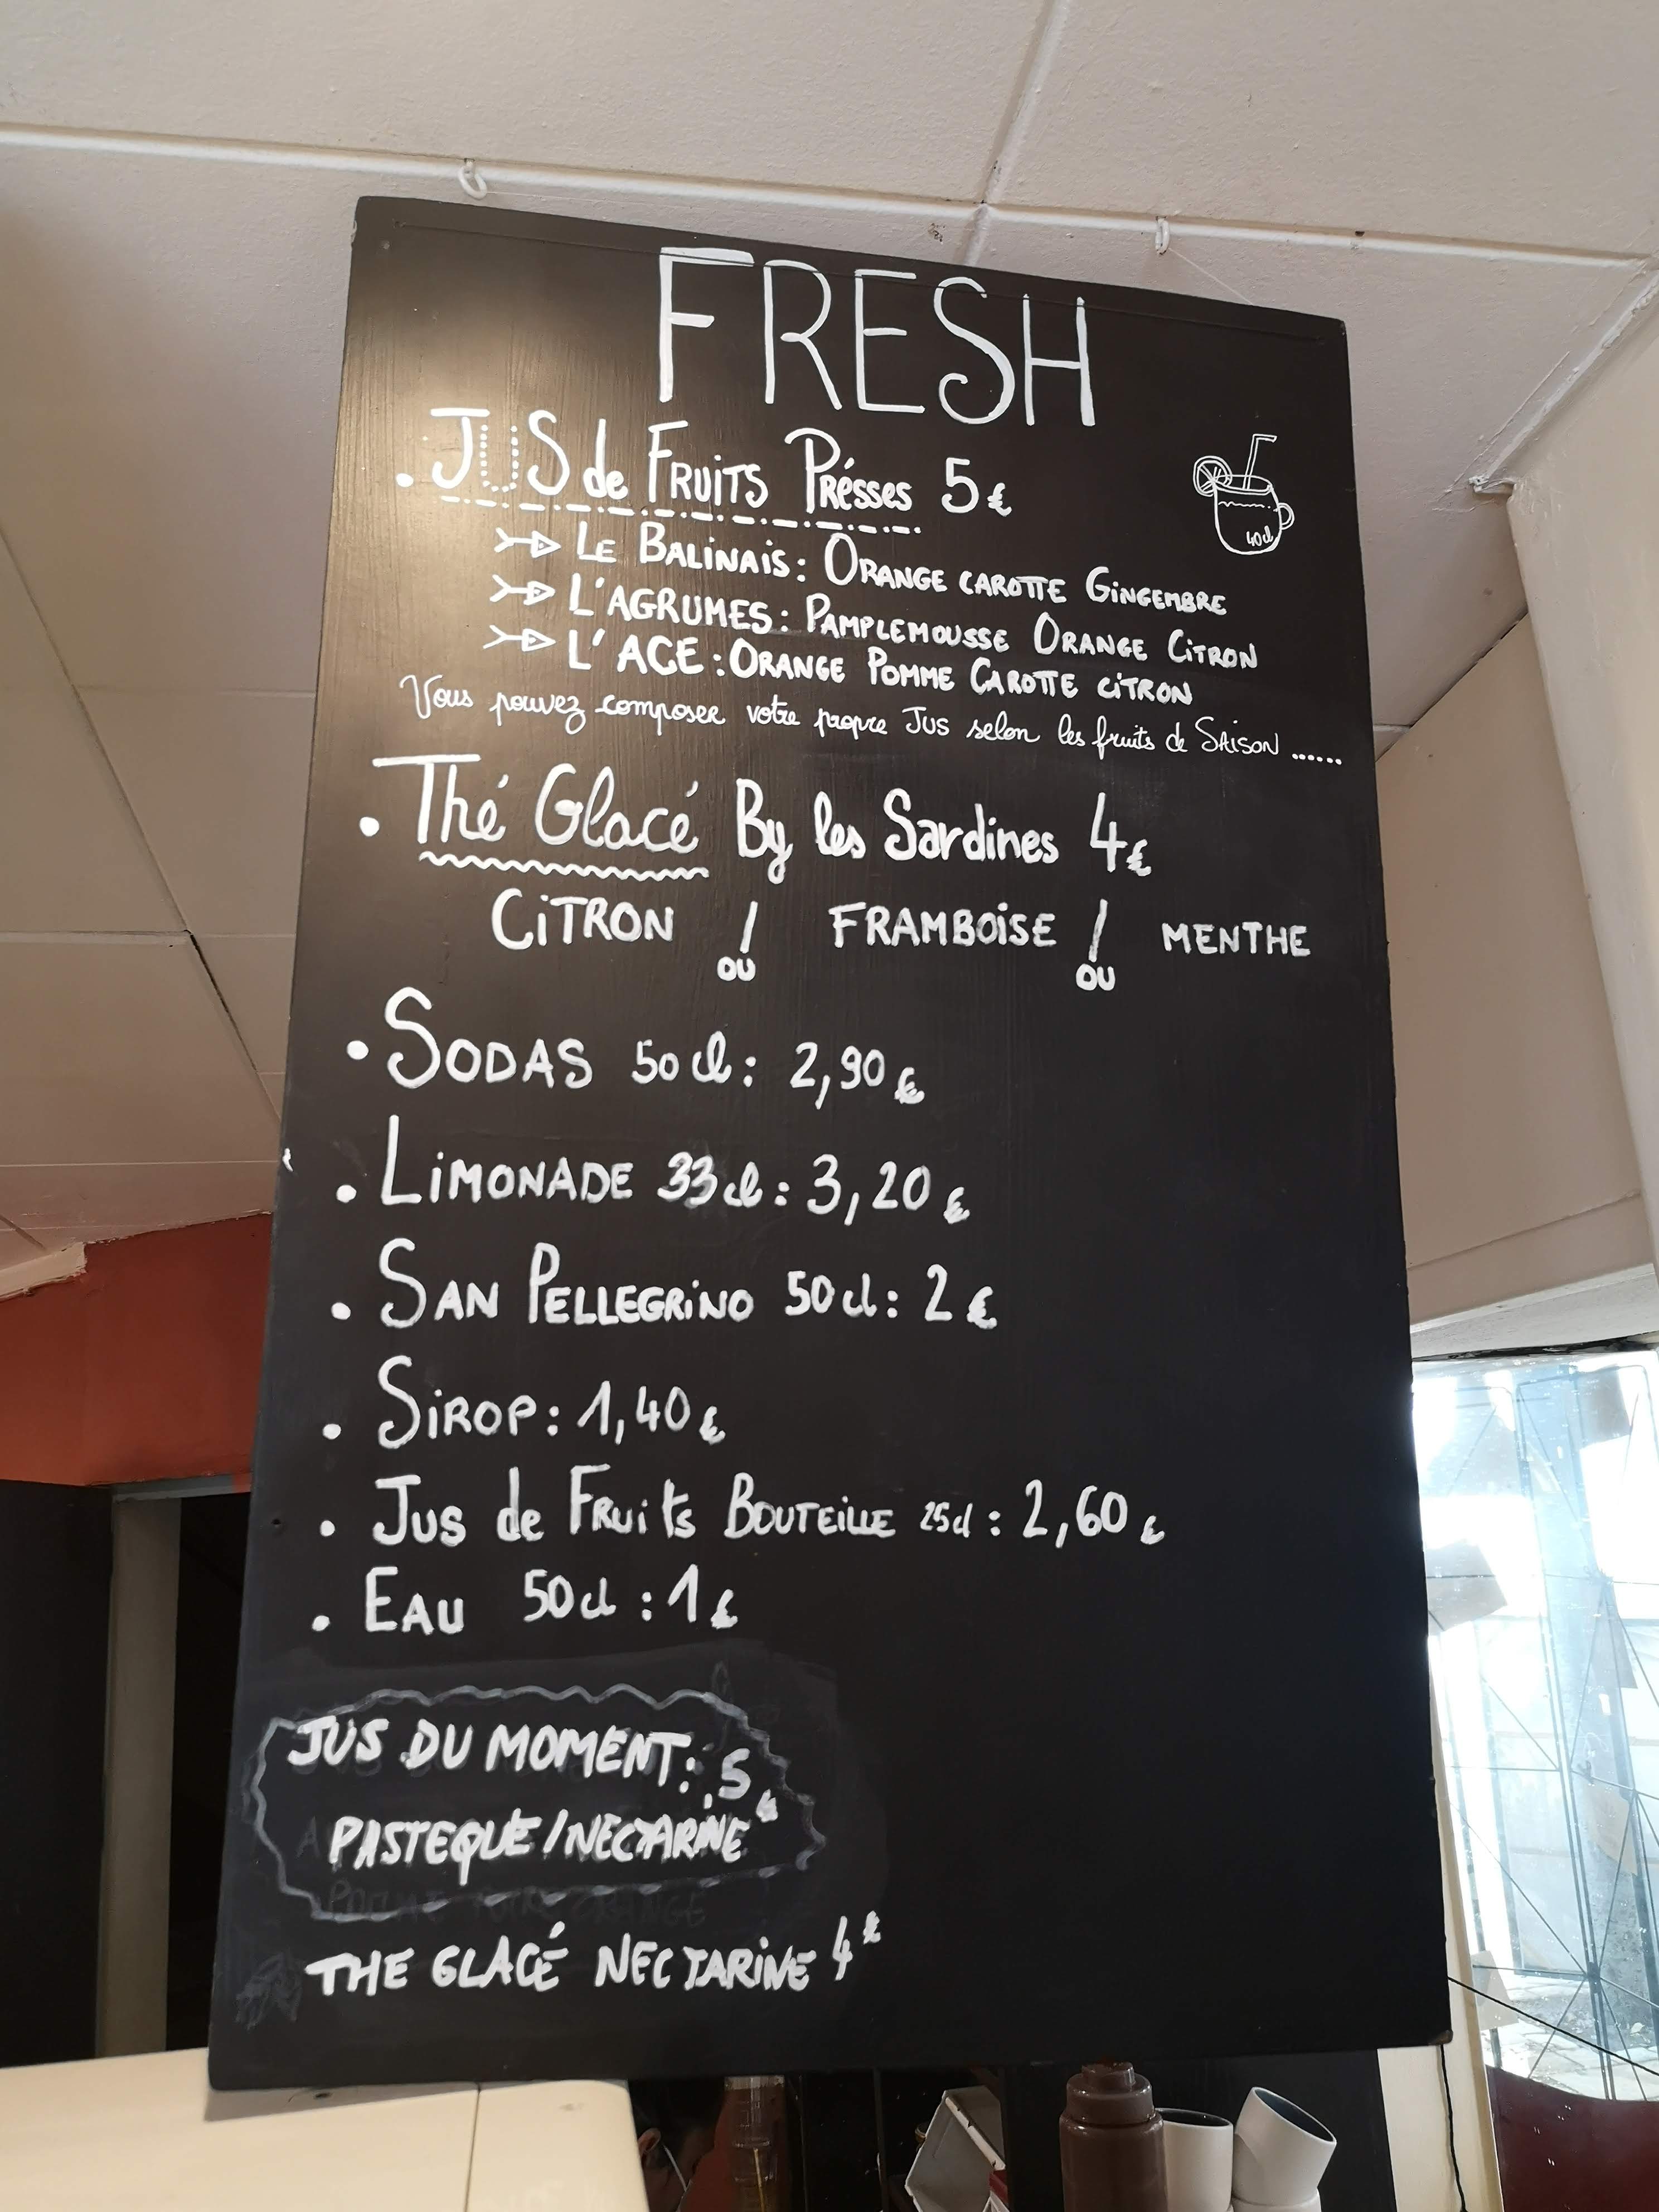 FRESH
. JUS de FRUITS PRÉSSES 5€
40cl
LE BALINAIS : ORANGE CAROTTE GINGEMBRE
L'AGRUMES : PAMPLEMOUSSE ORANGE CITRON
L'ACE : ORANGE POMME CAROTTE CITRON
Vous pouvez composer votre propre JUS selon les fruits de SAISON ......
. Thé Glacé By les Sardines 4€
CITRON / OU FRAMBOISE / OU MENTHE
. SODAS 50 cl : 2,90 €
. LIMONADE 33 cl : 3,20 €
. SAN PELLEGRINO 50 cl : 2 €
. SIROP : 1,40 €
. Jus de FRUITS BOUTEILLE 25cl : 2,60 €
. EAU 50cl : 1 €
JUS DU MOMENT : 5 €
PASTEQUE/NECTARINE
THE GLACÉ NECTARINE 4€